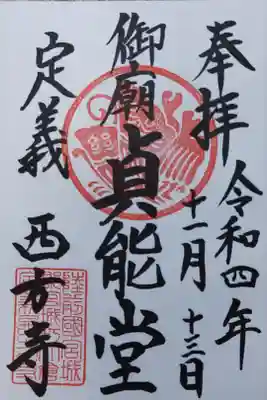 奉拝
令和四年
十一月 十三日
御廟 貞能堂
定義 西方寺